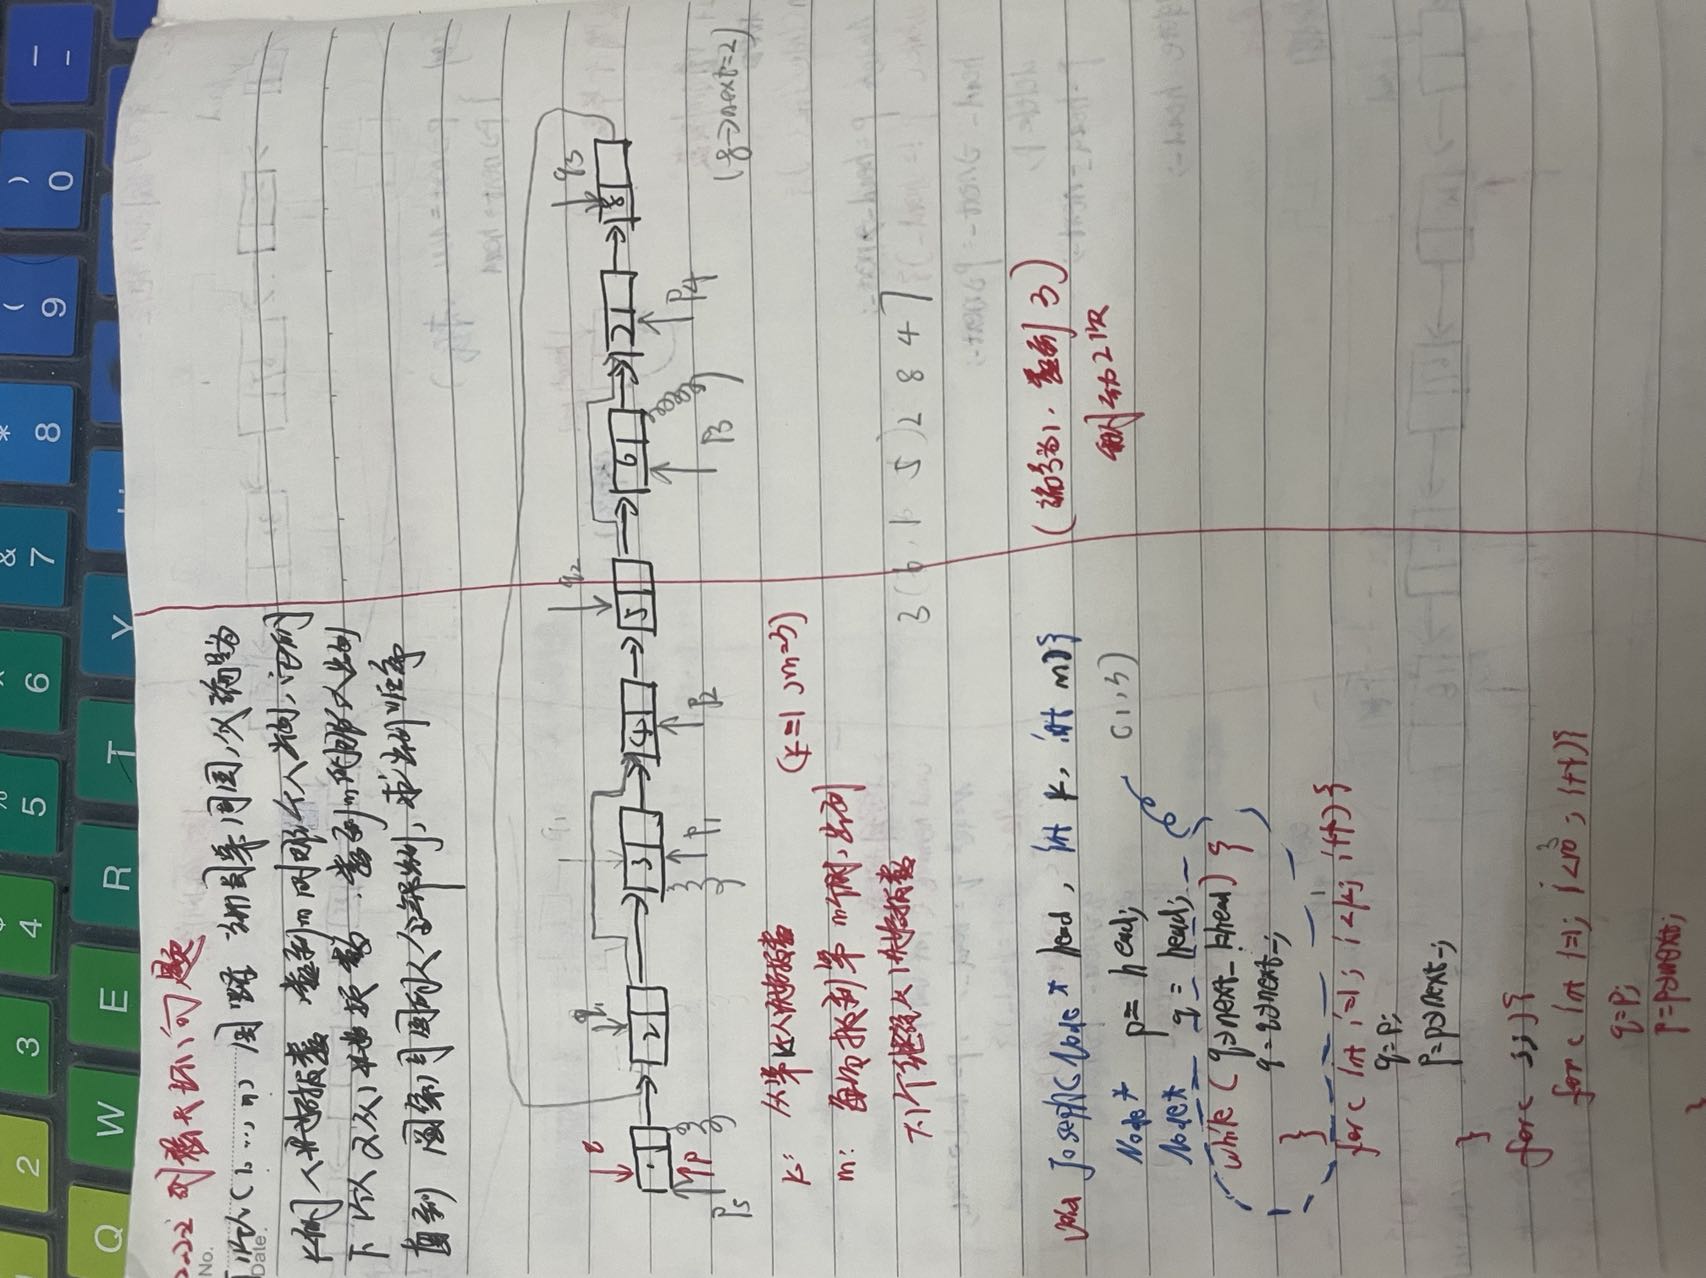 2 3 4 5 6 & 7 * 8 ( 9 ) 0 _ -
Q W E R T Y
2.22 约瑟夫环问题
No.
Date.
n个人(1, ..., n) 围坐在一张圆桌周围,从编号为
k的人开始报数,数到m的那个人出列,它的
下一个人又从1开始报数,数到m的那个人出列
直到圆桌周围的人全部出列,求出列顺序
q q1 q1 q2 q3
1 2 3 4 5 6 7 8
p5 p p1 p2 p3 p4
(8->next=2)
k: 从第k个人开始报数 (k=1, m=3)
m: 每次报到第m个时,出列
下1个继续从1开始报数
3 (6, 1 5) 2 8 4 7
void Joseph(Node* head, int k, int m){
(编号为1, 数到3)
Node* p = head; (1,3)
则移动2次
Node* q = head;
while (q->next_ != head) {
q = q->next_;
}
for( int i=1; i<k; i++){
q=p;
p=p->next_;
}
for( ;;){
for( int i=1; i<m; i++){
q=p;
p=p->next;
}